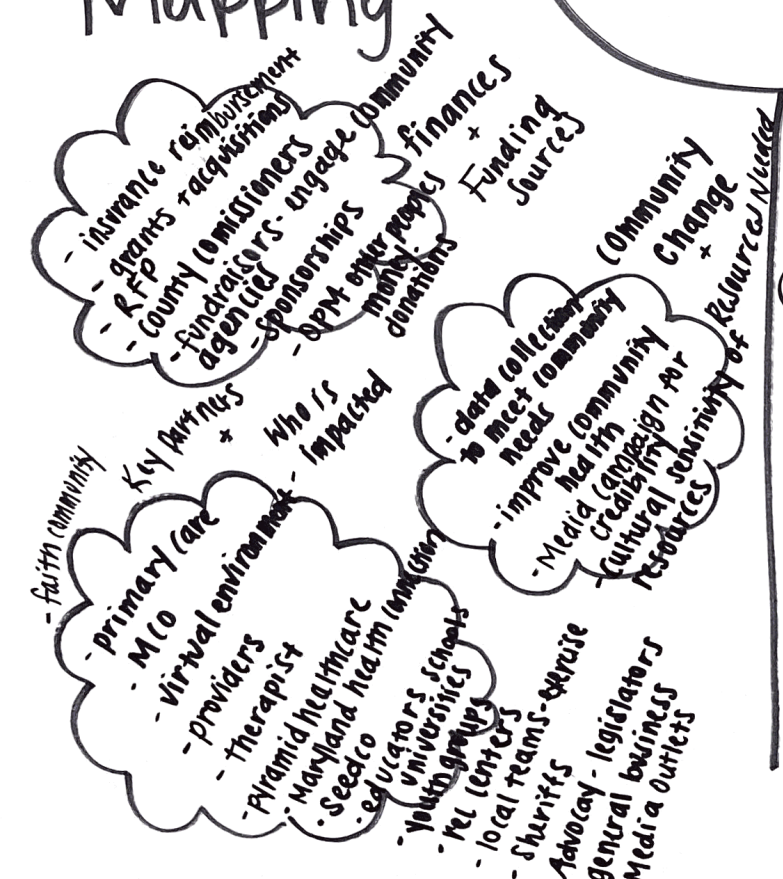 Mapping
Community
finances
+
Funding
Sources
- insurance reimbursement
- grants + acquisitions
- RFP
- County Comissioners
- fundraisors - engage
agencies
- Sponsorships
- OPM other peoples
money -
donations
Community
Change
+
Resources Needed
- data collection
to meet community
needs
- improve community
health
- Media campaign for
credibility
- Cultural sensitivity of
resources
Key Partners
+
Who is
impacted
- faith community
- primary care
- MCO
- virtual environment -
- providers
- therapist
- pyramid healthcare
- Maryland health connection
- Seedco
- educators schools
universities
- youth groups
- rec centers
- local teams - exercise
- Sheriffs
Advocay - legislators
general business
Media outlets